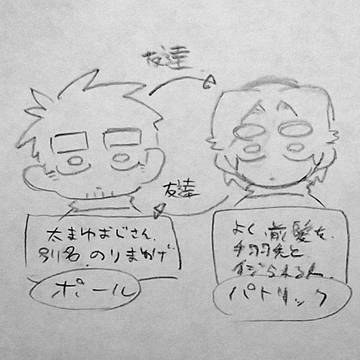 友達
友達
太まゆまじさん
別名 のりまゆげ
ポール
よく 前髪を
イジられる人
パトリック